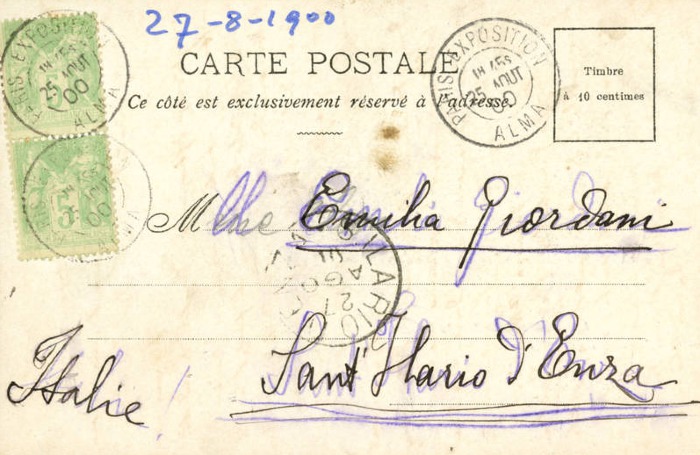 27-8-1900
CARTE POSTALE
Ce côté est exclusivement réservé à l'adresse.
Timbre
à 10 centimes
PARIS EXPOSITION
25 AOUT
00
ALMA
PARIS EXPOSITION
25 AOUT
00
ALMA
5
00
Mlle Emilia Giordani
ILARIO
AGO
27
Sant'Ilario d'Enza
Italie!